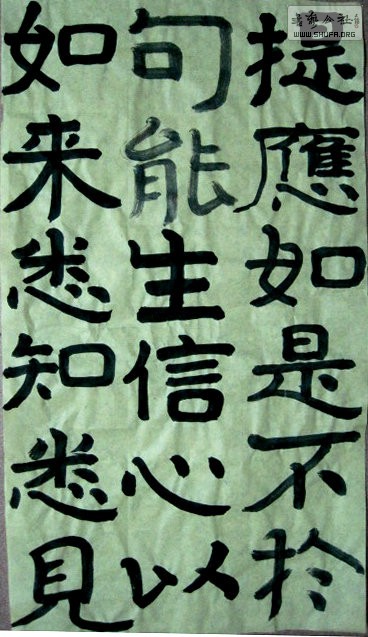 提應如是不於
句能生信心以
如来悉知悉見
WWW.SHUFA.ORG